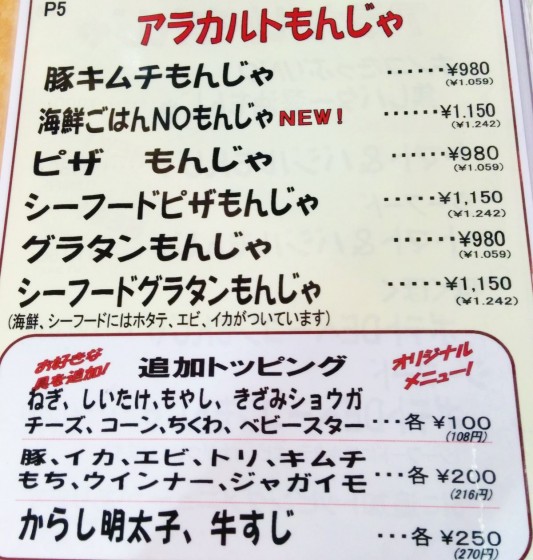 P5
アラカルトもんじゃ
豚キムチもんじゃ ······¥980
(¥1.059)
海鮮ごはんNOもんじゃNEW! ·····¥1.150
(¥1.242)
ピザ もんじゃ ······¥980
(¥1.059)
シーフードピザもんじゃ ·····¥1,150
(¥1.242)
グラタンもんじゃ ······¥980
(¥1.059)
シーフードグラタンもんじゃ ·····¥1,150
(¥1.242)
(海鮮、シーフードにはホタテ、エビ、イカがついています)
お好きな
具を追加!
追加トッピング
オリジナル
メニュー!
ねぎ、しいたけ、もやし、きざみショウガ
チーズ、コーン、ちくわ、ベビースター···各 ¥100
(108円)
豚、イカ、エビ、トリ、キムチ
もち、ウインナー、ジャガイモ ···各 ¥200
(216円)
からし明太子、牛すじ ···各 ¥250
(270円)